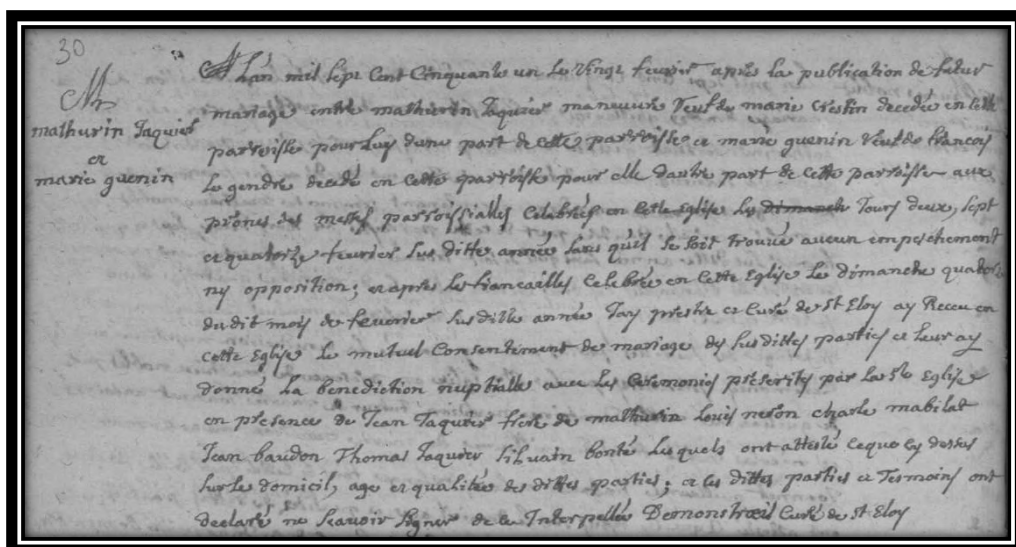 30
M
mathurin Jaquier
et
marie guenin
Lan mil sept Cent Cinquante un Le vingt fevrier apres la publication de futur
mariage entre mathurin Jaquier maneuvre Veuf de marie Crestin decedée en cette
parroisse pour Luy dune part de cette parroisse et marie guenin Veufve de francois
Le gendre decedé en cette parroisse pour elle dautre part de cette parroisse aux
prônes des messes parroissialles Celebrés en cette Eglise les dimanch Jours deux, sept
et quatorze fevrier sus ditte année sans quil se soit trouvée aucun empeschement
ny opposition; et apres les fiancailles Celebrée en cette Eglise Le dimanche quatorze
dudit mois de fevrier susditte année Jay prestre et Curé de St Eloy ay Receu en
cette Eglise Le mutuel Consentement de mariage des susdittes parties et Leur ay
donné La benediction nuptialle avec les Ceremonies prescrites par la Ste Eglise
en presence de Jean Jaquier frere de mathurin Louis neron charle mabilat
Jean baudon Thomas Jaquier Silvain bonté Lesquels ont attesté ceque cy dessus
sur le domicil, age et qualitée des dittes parties; et les dittes parties et Tesmoins ont
declaré ne Scavoir Signer de ce Interpellée Demonstroeil Curé de St Eloy